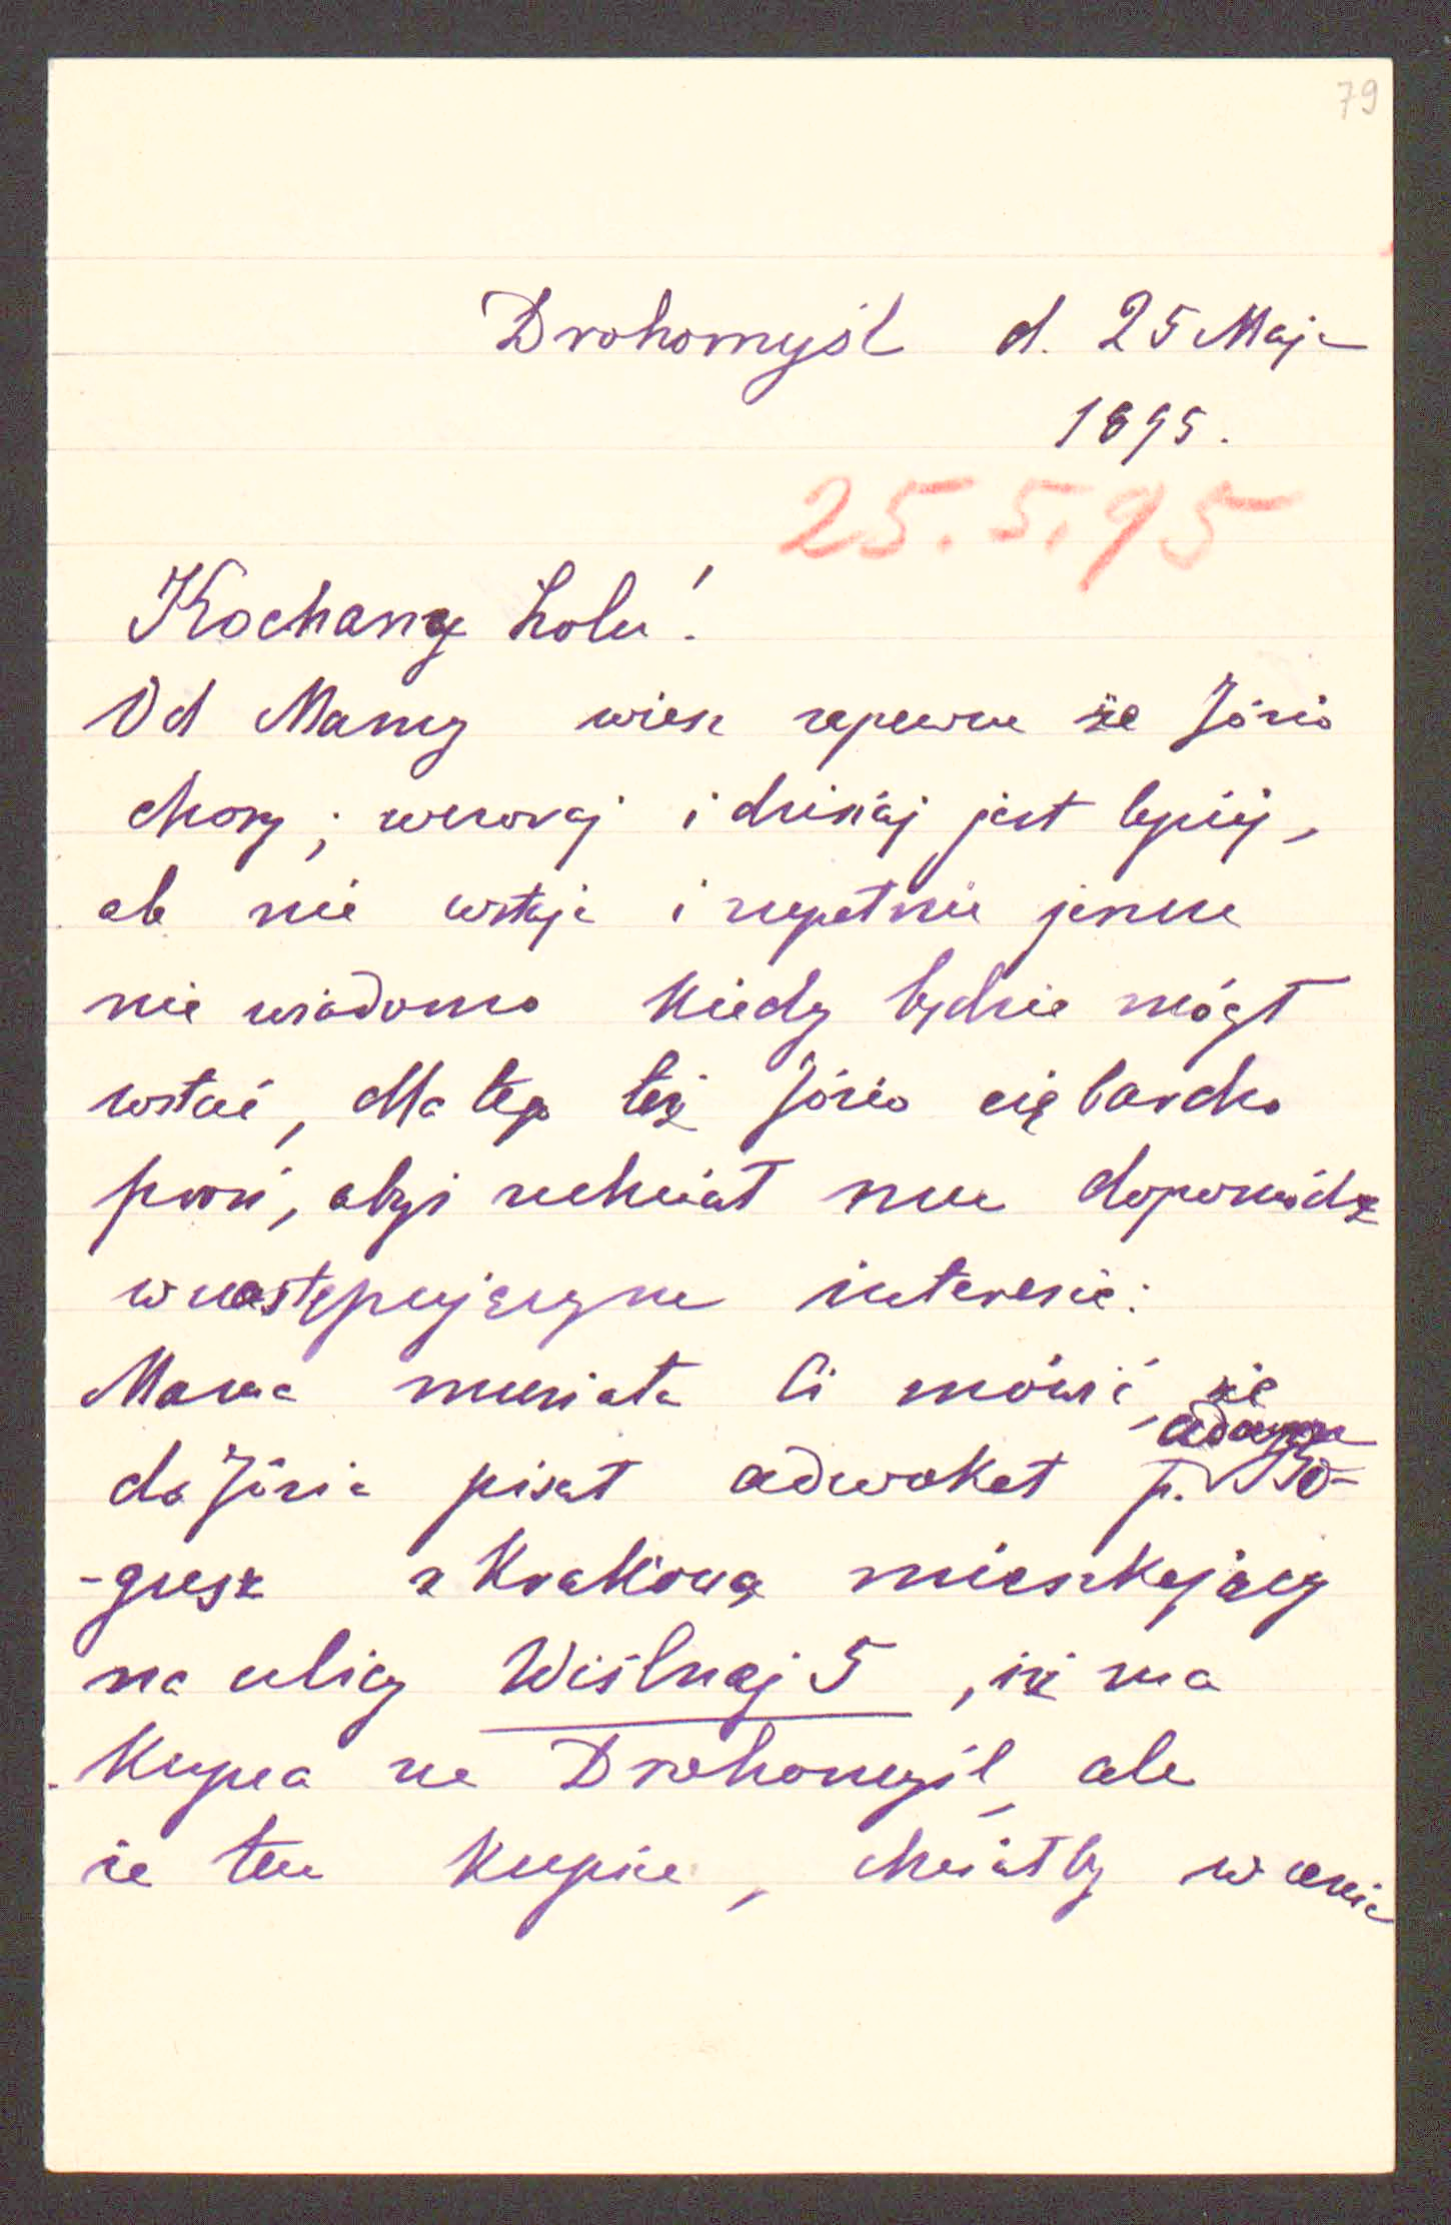 79
Drohomyśl d. 25 Maja
1895.
25.5.95
Kochany Lolu!
Od Mamy wiesz zapewne że Józio
chory; wczoraj i dzisiaj jest lepiej,
ale nie wstaje i zupełnie jeszcze
nie wiadomo kiedy będzie mógł
wstać, dla tego też Józio cię bardzo
prosi, abyś zechciał mu dopomódz
w następującym interesie:
Mama musiała Ci mówić, że
do Józia pisał adwokat p. Adam Bo-
-gusz z Krakowa mieszkający
na ulicy Wiślnej 5, iż ma
kupca na Drohomyśl, ale
że ten kupiec, chciałby w cenie